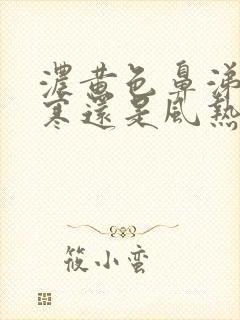 濃黄色鼻涕
寒還是風熱
筱小蛮